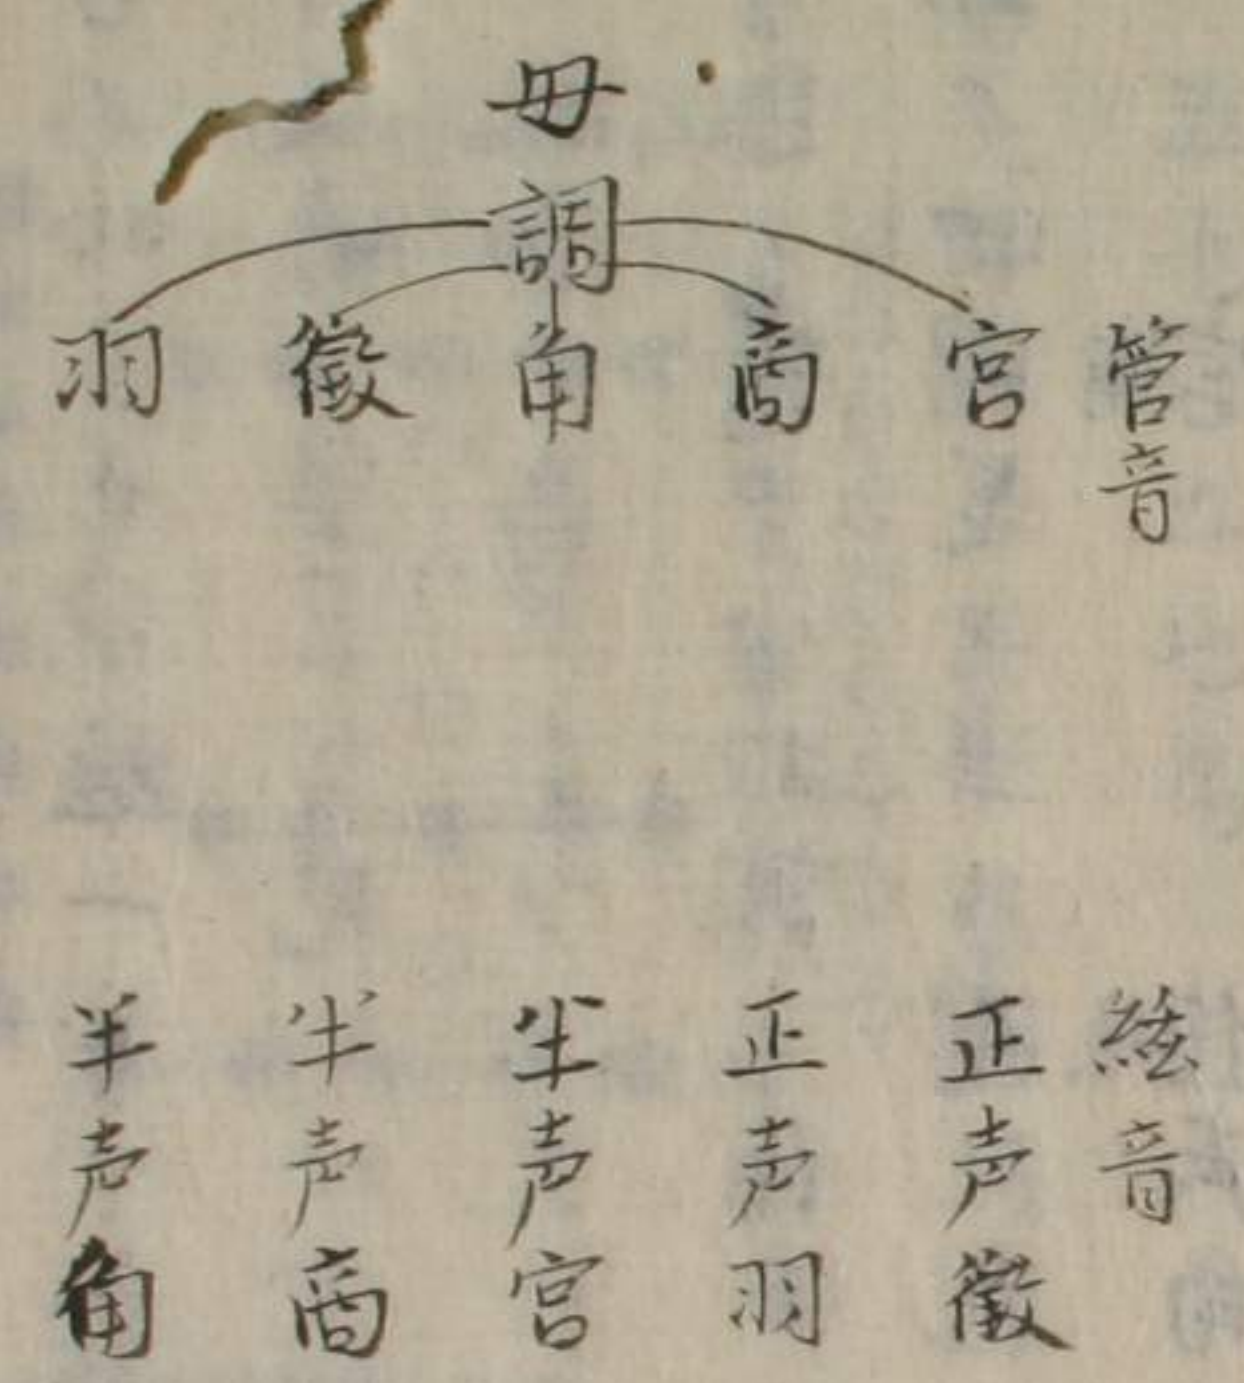 毋調
管音
宮
商
角
徵
羽
絃音
正声徵
正声羽
半声宮
半声商
半声角